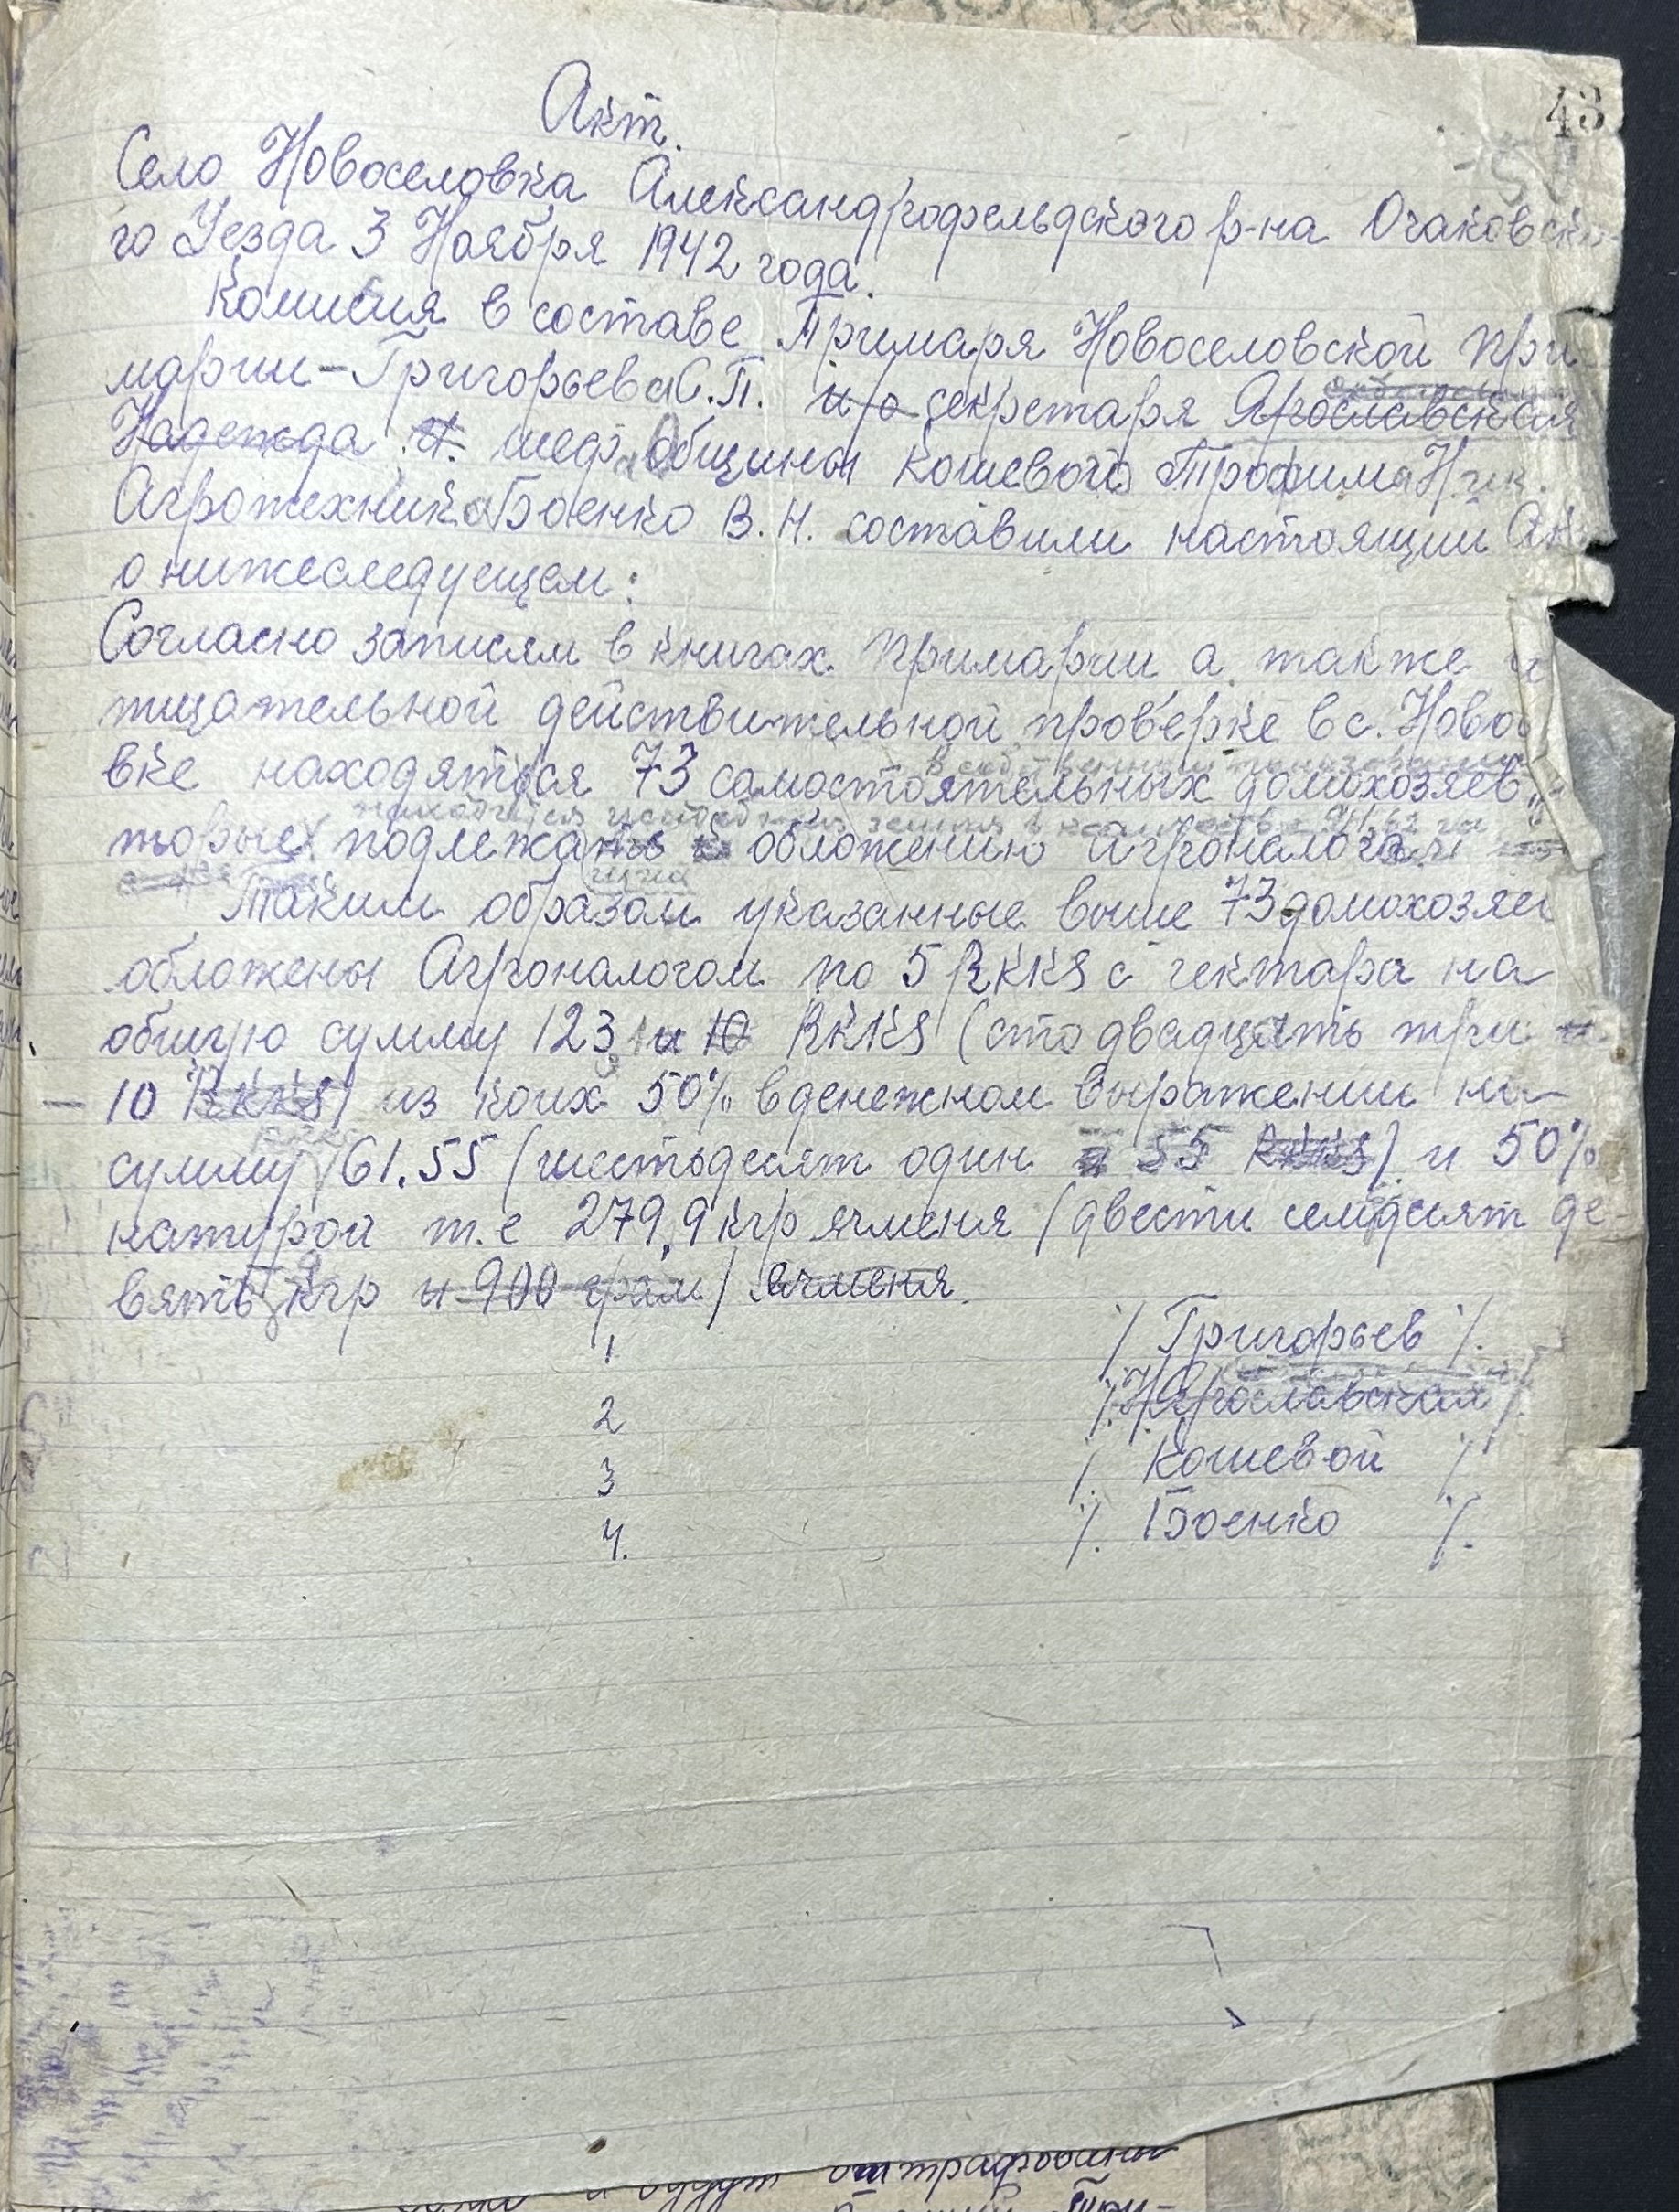 43
Акт.
Село Новоселовка Александрофельдского р-на Очаковско-
го Уезда 3 Ноября 1942 года.
Комисия в составе Примаря Новоселовской При
марии - Григорьева С.П. и-о секретаря Ярославская
Надежда шеф общины Кошевого Трофима Ник.
Агротехника Боенко В.Н. составили настоящий Ак
о нижеследуещем:
Согласно записям в книгах Примарии а также и
тщательной действительной проверке в с. Новос
в собственном пользовании
вке находятся 73 самостоятельных домохозяев
находится усадебная земля в количестве га
торые подлежать обложению Агроналога
Таким образом указанные выше 73 домохозяев
обложены Агроналогом по 5 RKKS с гектара на
общую сумму 123, и 10 RKKS (сто двадцать три и
10 RKKS) из коих 50% в денежном выражении на
сумму 61.55 (шестьдесят один и 55 RKKS) и 50%
натурой т.е 279,9 кгр ячменя (двести семдесят де-
вять кгр и 900 грам) ячменя.
1 /. Григорьев /.
2 /. Н Ярославская /.
3 /. Кошевой /.
4. /. Боенко /.